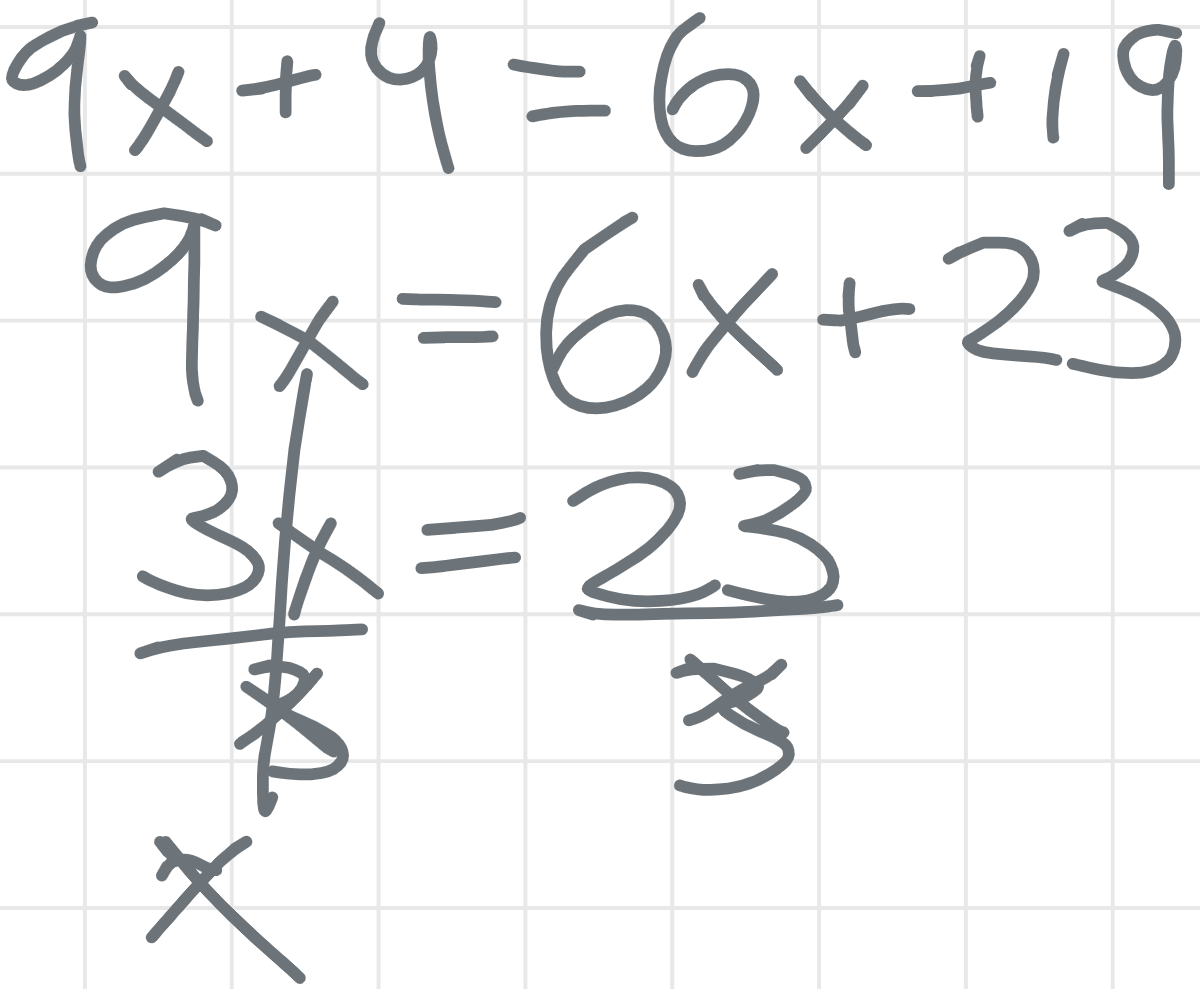 9x+4=6x+19
9x=6x+23
3x=23
3 3
x